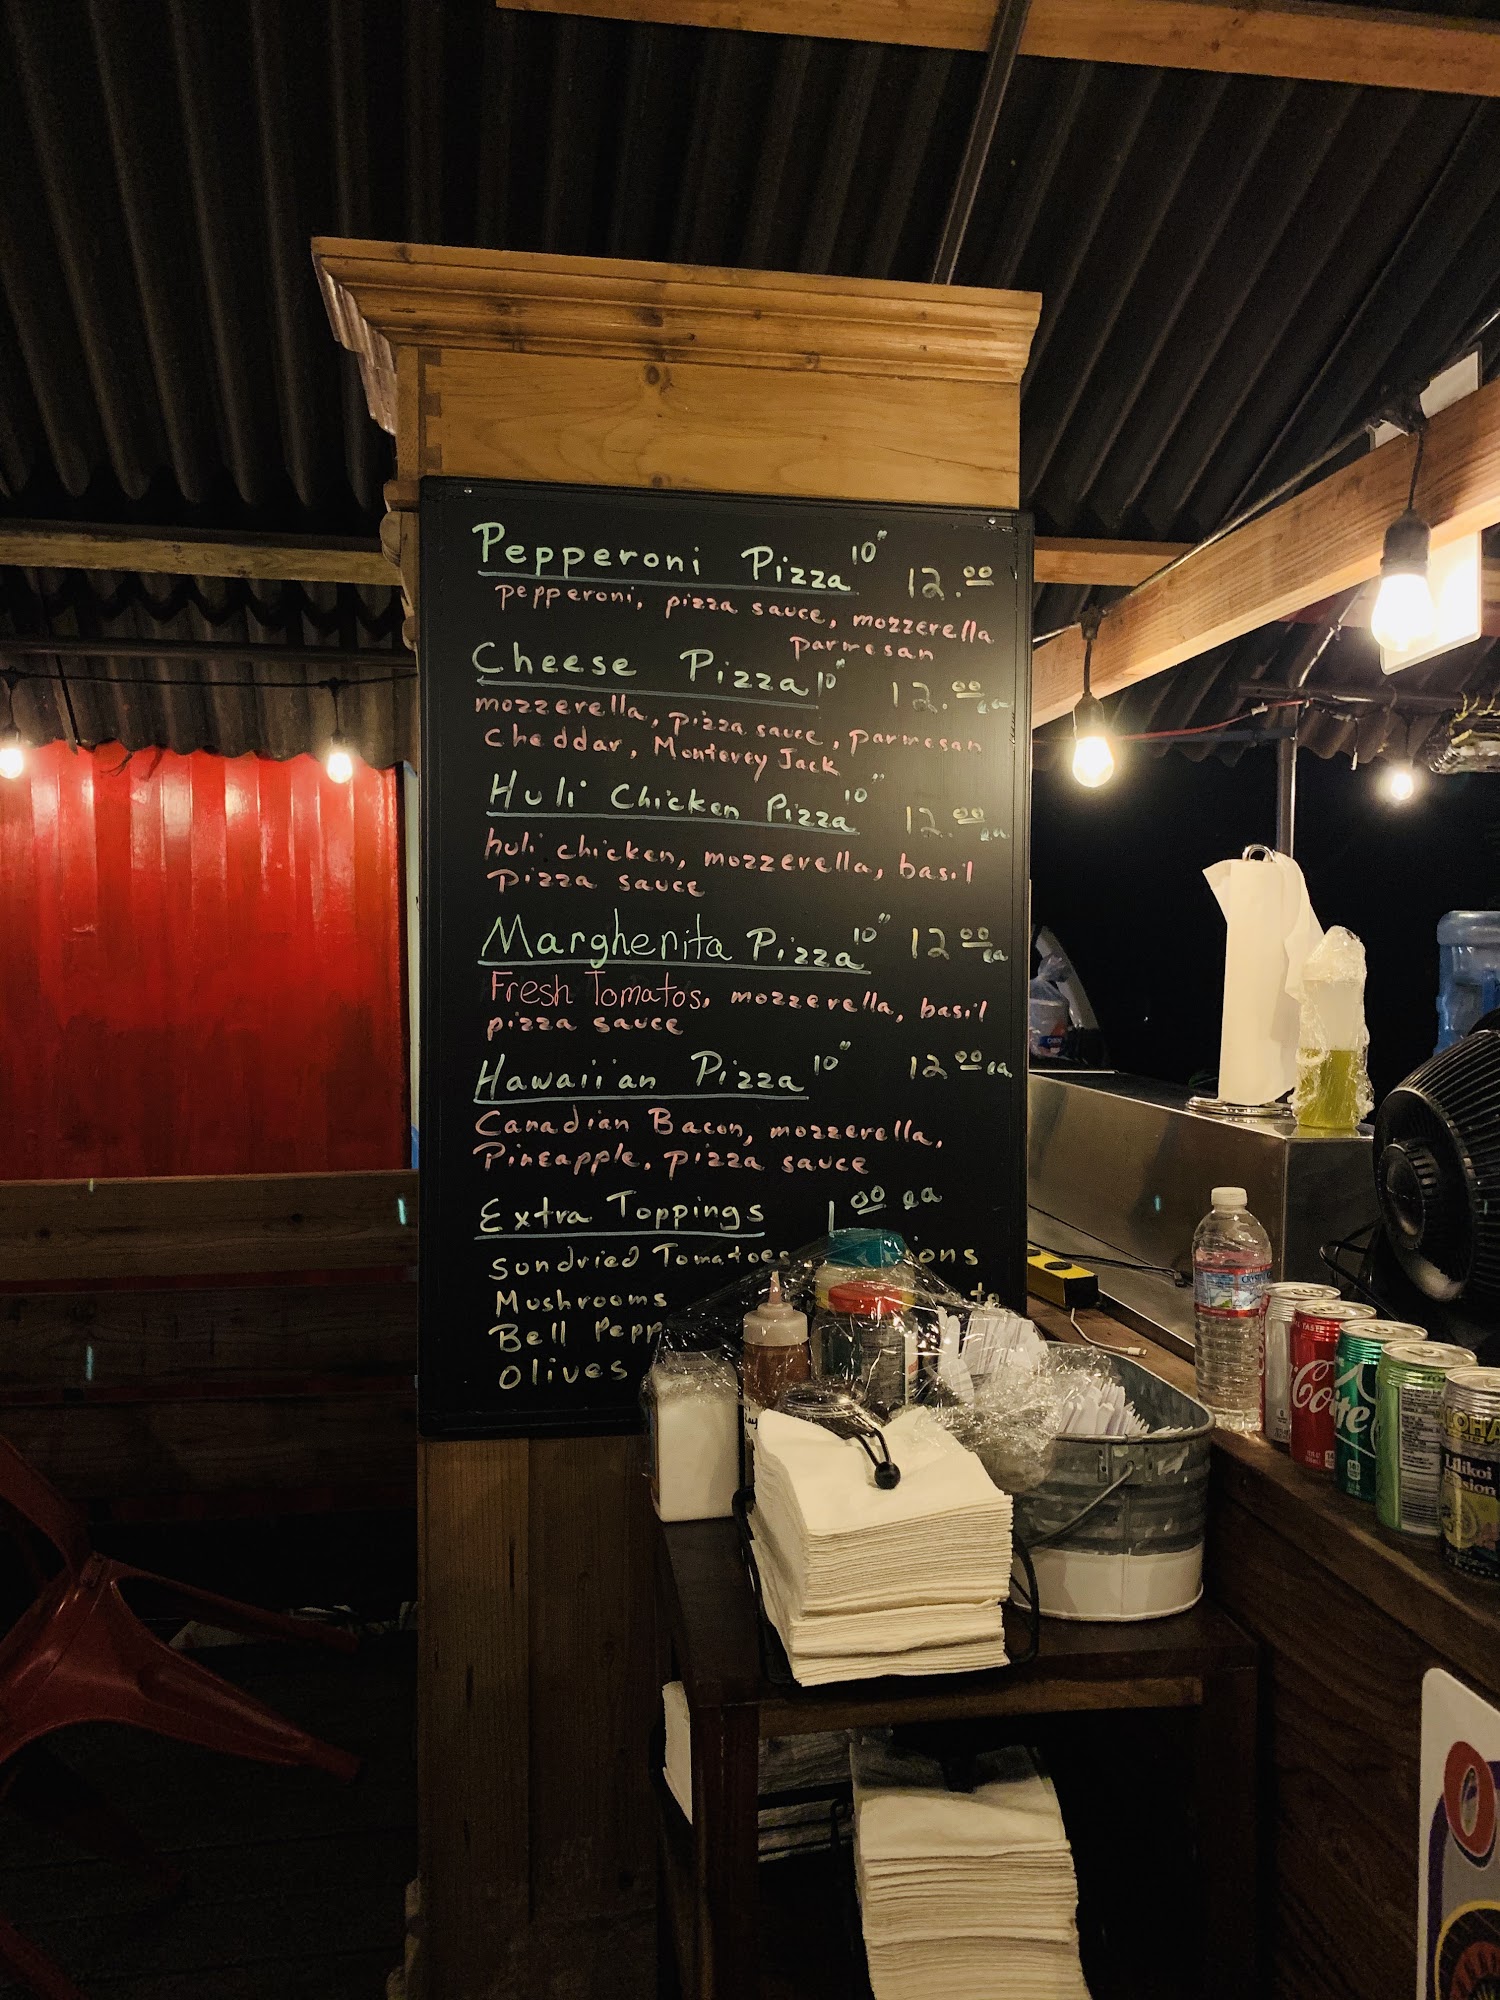 Pepperoni Pizza 10" 12.00
pepperoni, pizza sauce, mozzerella
parmesan
Cheese Pizza 10" 12.00 ea
mozzerella, pizza sauce, parmesan
Cheddar, Monterey Jack
Huli Chicken Pizza 10" 12.00 ea
huli chicken, mozzerella, basil
pizza sauce
Margherita Pizza 10" 12.00 ea
Fresh Tomatos, mozzerella, basil
pizza sauce
Hawaiian Pizza 10" 12.00 ea
Canadian Bacon, mozzerella,
Pineapple, pizza sauce
Extra Toppings 1.00 ea
Sundried Tomatoes
Mushrooms
Bell Pepp
Olives
Lilikoi